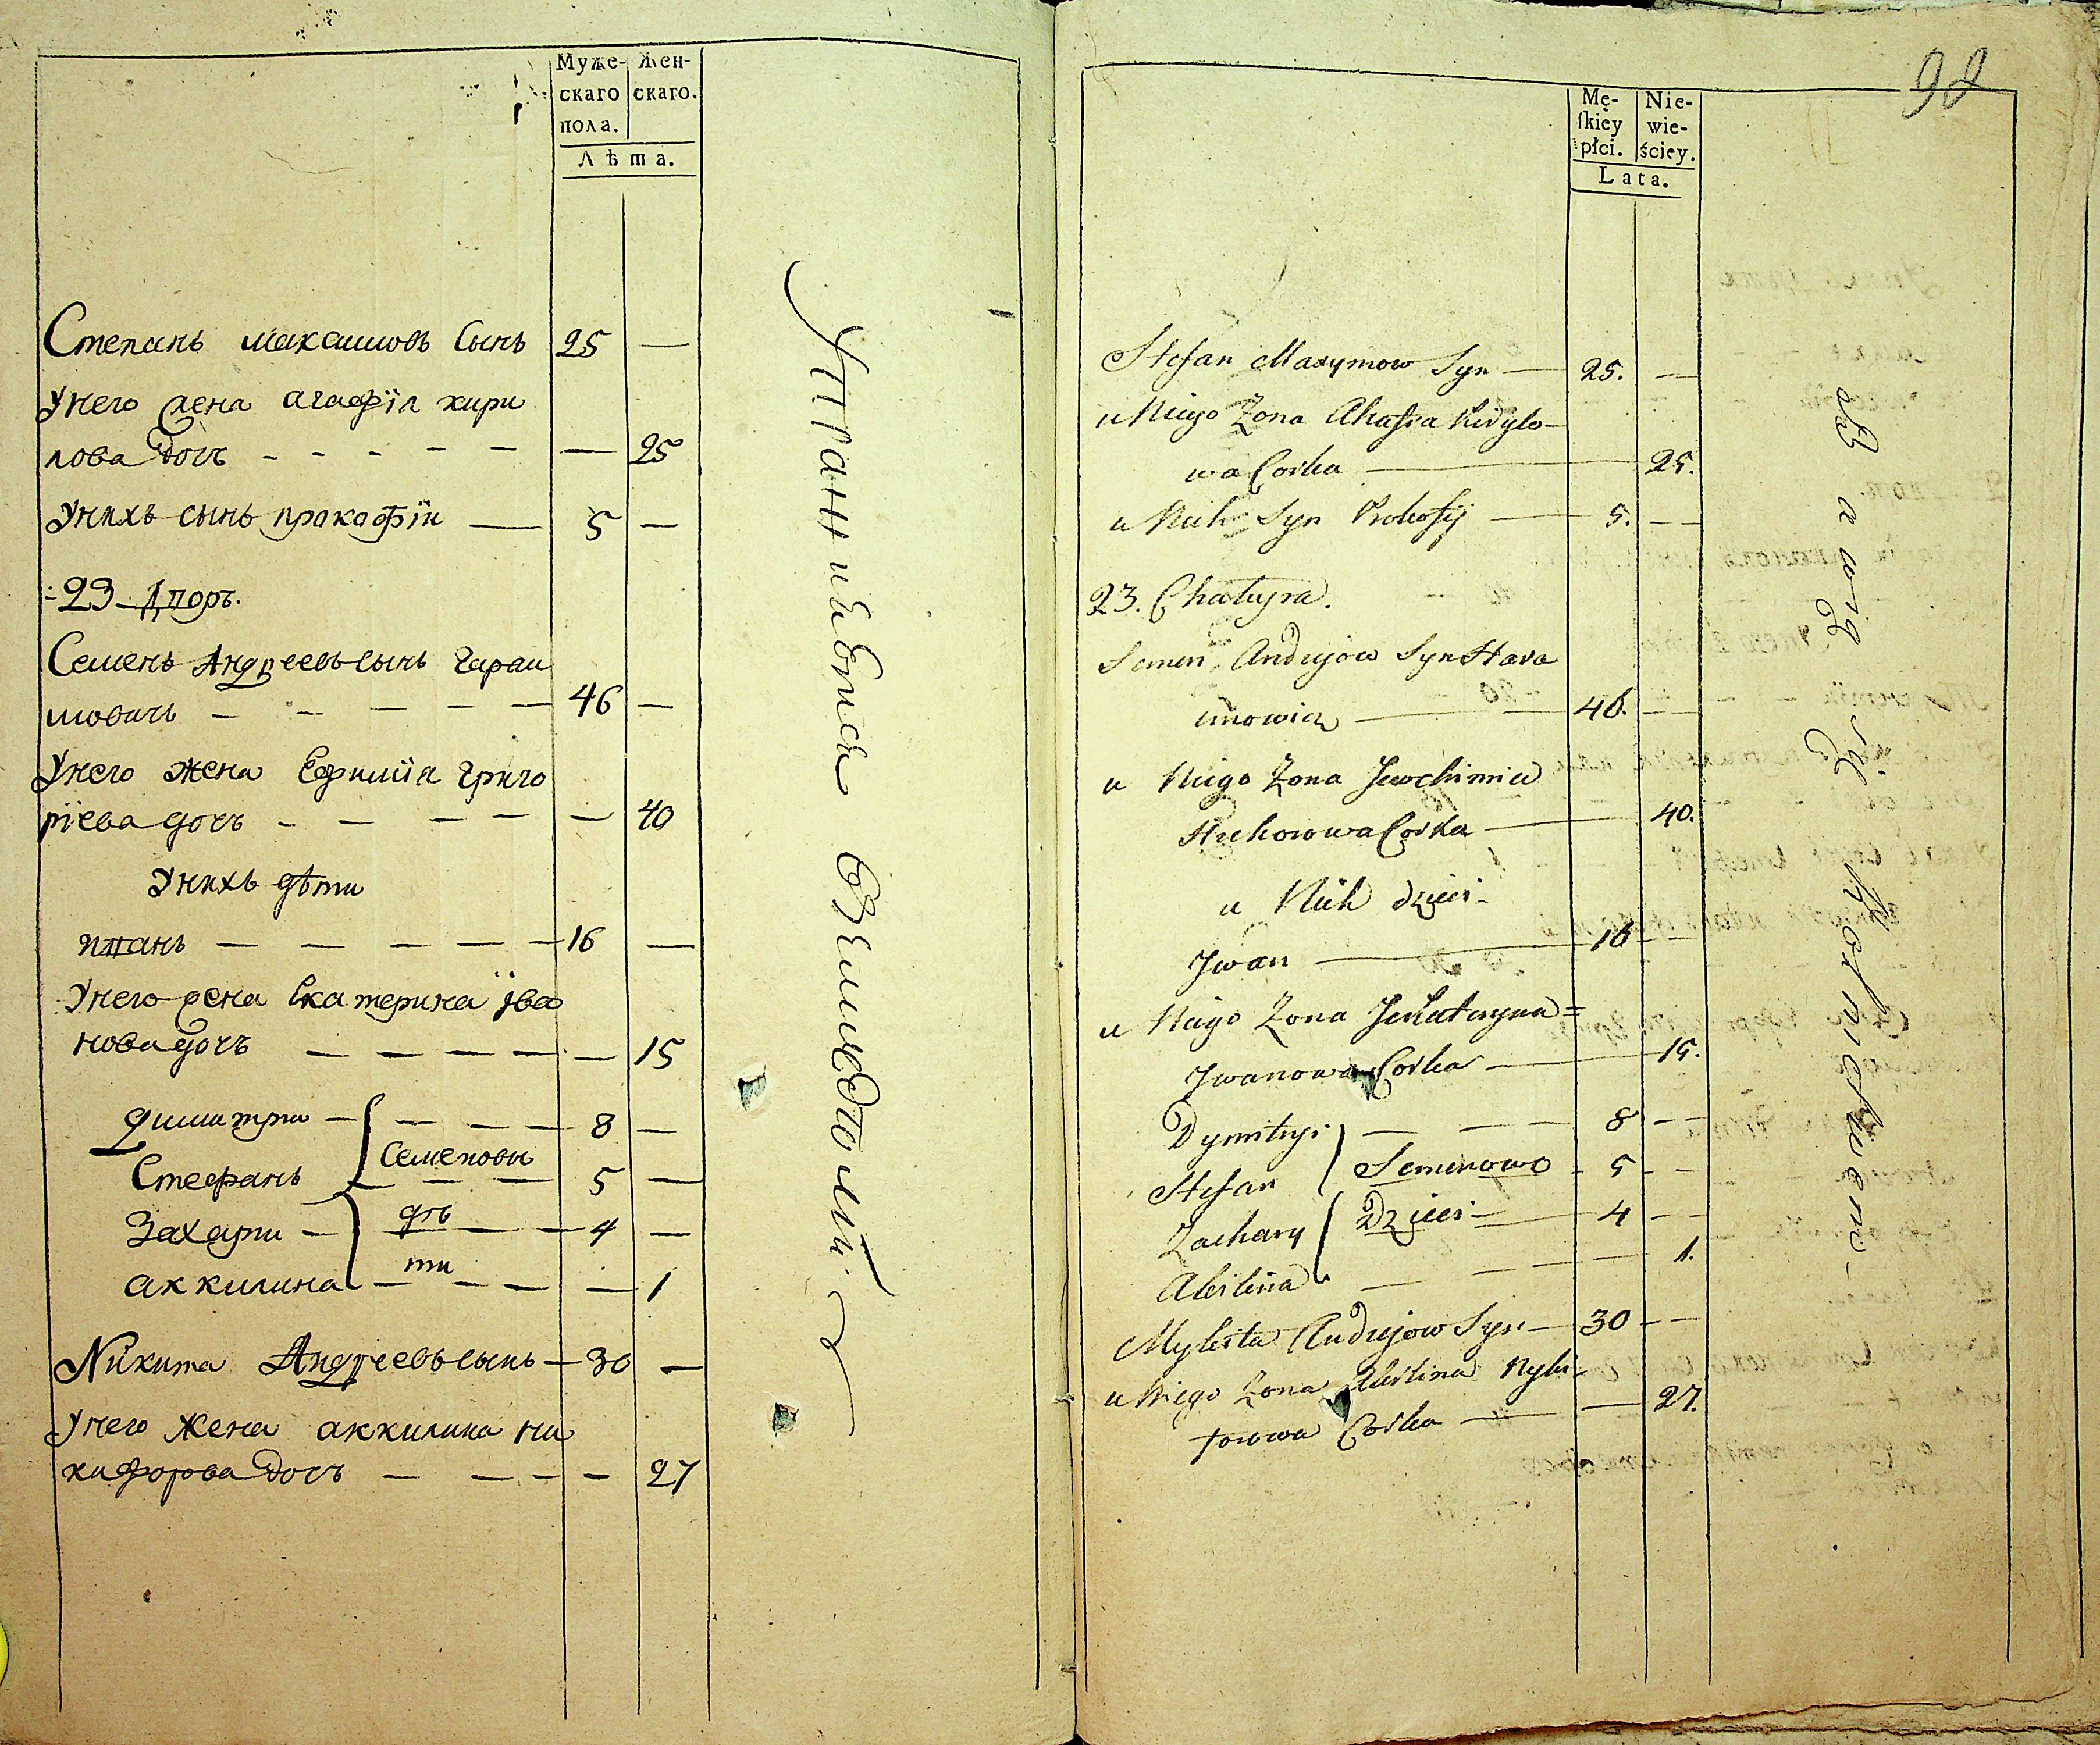 Муже- Жен-
скаго скаго.
пола.
Лѣта.
Степанъ максимовъ сынъ 25 —
Унего жена агафія кири
лова дочъ - - - - - — 25
Унихъ сынъ прокофіи — 5 —
23 Дворъ.
Семенъ Андреевъ сынъ Гараи
мовичъ — - — — — 46 —
Унего жена Ефиміія григо
ріева дочъ - — — — — 40
Унихъ дѣти
иванъ — — — — — 16 —
Унего жена Екатерина ива
нова дочъ — — — — — — 15
димитри — — — — 8 —
Семеновы
Стефанъ — — — 5 —
Захари — дѣ — 4 —
ти
аккилина — — — — — 1
Никита Андреевъ сынъ — 30 —
Унего Жена аккилина ни
кифорова дочъ — — — — 27
98
Mę- Nie-
ſkiey wie-
płci. ściey.
Lata.
Stefan Maxymow Syn — 25. —
u Niego Zona Ahafia Kiryło-
wa Corka — 25.
u Nich Syn Prokofij — 5. —
23. Chałupa.
Semen Andrejow Syn Hara
imowicz — 46. —
u Niego Zona Jewchimia
Hrehorowa Corka — 40.
u Nich dzieci -
Jwan — 16 - -
u Niego Zona Jekateryna =
Jwanowa Corka — 15.
Dymitryi — — — 8 - -
Stefan Semenowe - 5 - -
Zachary Dzieci — 4 - -
Akilina — — — — 1.
Mykita Andrejow Syn — 30 - -
u Niego Zona Akilina Nyki-
forowa Corka — — 27.